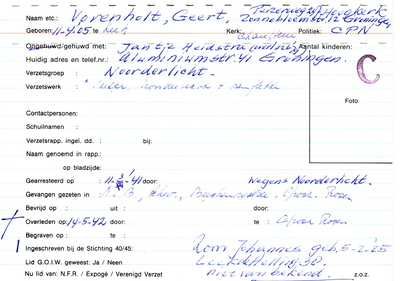 Naam etc.: Vorenholt, Geert, Hoogkerk
Zonnebloemstr. 12 Groningen
Geboren: 11-4.05 te Kerk: Politiek: CPN
Ongehuwd/gehuwd met: Jantje Aantal kinderen:
Huidig adres en telef.nr.: Aluminiumstr. 41 Groningen.
Verzetsgroep : Noorderlicht.
Verzetswerk :
Foto
C
Contactpersonen:
Schuilnamen :
Verzetsrapp. ingel. dd. : bij:
Naam genoemd in rapp.:
op bladzijde:
Gearresteerd op : 11- -41 door: Wegens Noorderlicht.
Gevangen gezeten in: Buchenwalde, Gross Rosen
Bevrijd op : uit : door:
Overleden op: 14-5-42 door: te : Gross Rosen
Begraven op : te :
Ingeschreven bij de Stichting 40/45: Zoon Johannes geb. 5-2-25
Lid G.O.I.W. geweest: Ja / Neen
Nu lid van: N.F.R. / Expogé / Verenigd Verzet Niet van bekend. z.o.z.